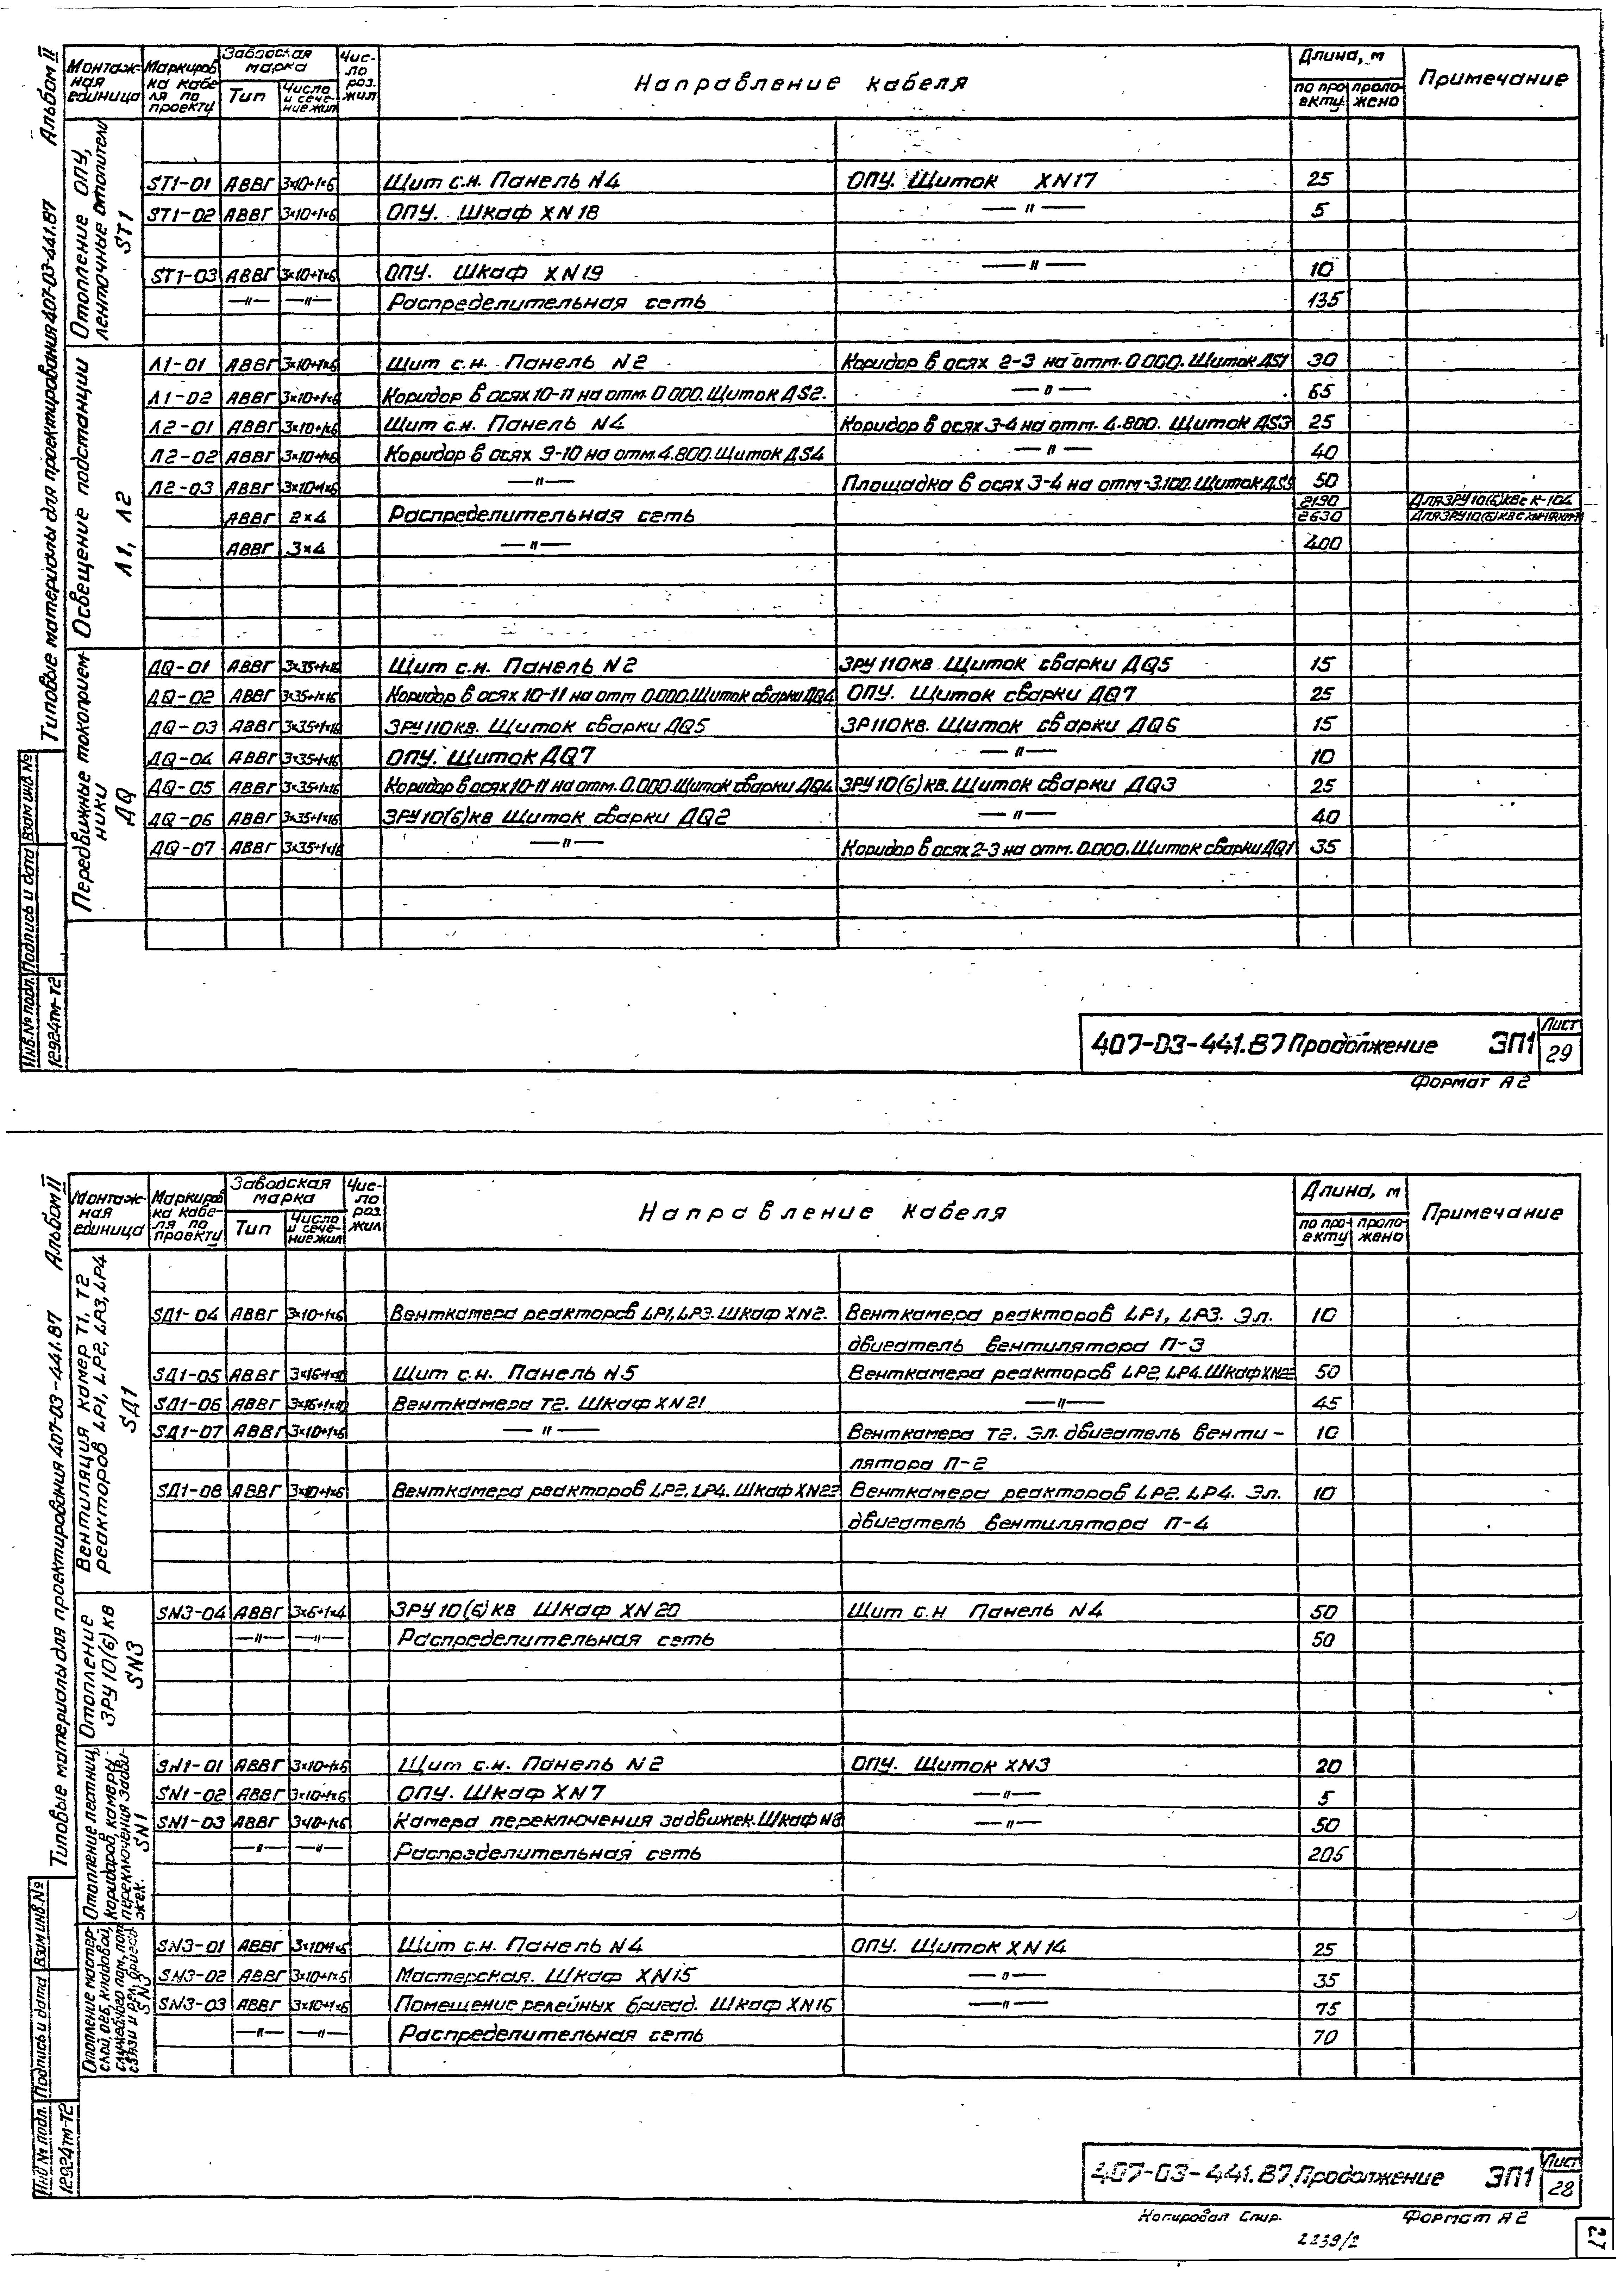 Альбом II
Типовые материалы для проектирования 407-03-441.87
Монтаж-
ная
единица
Маркиров
ка кабе
ля по
проекту
Заводская
марка
Тип
Число
и сече-
ние жил
Чис-
ло
роз.
жил
Направление кабеля
Длина, м
по про-
екту
проло-
жено
Примечание
Отопление ОПУ,
ленточные отопители
ST1
ST1-01 АВВГ 3×10+1×6 Щит с.н. Панель N4 ОПУ. Щиток XN17 25
ST1-02 АВВГ 3×10+1×6 ОПУ. Шкаф XN18 —"— 5
ST1-03 АВВГ 3×10+1×6 ОПУ. Шкаф XN19 —"— 10
—"— —"— Распределительная сеть 135
Освещение подстанции
Л1, Л2
Л1-01 АВВГ 3×10+1×6 Щит с.н. Панель N2 Коридор в осях 2-3 на отм. 0.000. Щиток ДS1 30
Л1-02 АВВГ 3×10+1×6 Коридор в осях 10-11 на отм. 0.000. Щиток ДS2. —"— 65
Л2-01 АВВГ 3×10+1×6 Щит с.н. Панель N4 Коридор в осях 3-4 на отм. 4.800. Щиток ДS3 25
Л2-02 АВВГ 3×10+1×6 Коридор в осях 9-10 на отм. 4.800. Щиток ДS4 —"— 40
Л2-03 АВВГ 3×10+1×6 —"— Площадка в осях 3-4 на отм-3.100. Щиток ДS5 50
АВВГ 2×4 Распределительная сеть 2190 Для ЗРУ 10(6)кВ с К-104
2630 Для ЗРУ 10(6)кВ с
АВВГ 3×4 —"— 400
Передвижные токоприем-
ники
ДQ
ДQ-01 АВВГ 3×35+1×16 Щит с.н. Панель N2 ЗРУ 110кв Щиток сварки ДQ5 15
ДQ-02 АВВГ 3×35+1×16 Коридор в осях 10-11 на отм 0.000. Щиток сварки ДQ4 ОПУ. Щиток сварки ДQ7 25
ДQ-03 АВВГ 3×35+1×16 ЗРУ 110кв. Щиток сварки ДQ5 ЗР110кв. Щиток сварки ДQ6 15
ДQ-04 АВВГ 3×35+1×16 ОПУ. Щиток ДQ7 —"— 10
ДQ-05 АВВГ 3×35+1×16 Коридор в осях 10-11 на отм. 0.000. Щиток сварки ДQ4 ЗРУ 10(6)кв. Щиток сварки ДQ3 25
ДQ-06 АВВГ 3×35+1×16 ЗРУ 10(6)кв Щиток сварки ДQ2 —"— 40
ДQ-07 АВВГ 3×35+1×16 —"— Коридор в осях 2-3 на отм. 0.000. Щиток сварки ДQ1 35
Инв.№ подл. Подпись и дата Взам инв.№
12924тм-Т2
407-03-441.87 Продолжение ЭП1
Лист
29
Формат А2
Альбом II
Типовые материалы для проектирования 407-03-441.87
Монтаж-
ная
единица
Маркиров
ка кабе-
ля по
проекту
Заводская
марка
Тип
Число
и сече-
ние жил
Чис-
ло
роз.
жил
Направление кабеля
Длина, м
по про-
екту
проло-
жено
Примечание
Вентиляция камер Т1, Т2
реакторов LP1, LP2, LP3, LP4
SД1
SД1-04 АВВГ 3×10+1×6 Венткамера реакторов LP1, LP3. Шкаф XN2. Венткамера реакторов LP1, LP3. Эл. 10
двигатель вентилятора П-3
SД1-05 АВВГ 3×16+1×10 Щит с.н. Панель N5 Венткамера реакторов LP2, LP4. Шкаф XN22 50
SД1-06 АВВГ 3×16+1×10 Венткамера Т2. Шкаф XN21 —"— 45
SД1-07 АВВГ 3×10+1×6 —"— Венткамера Т2. Эл. двигатель венти- 10
лятора П-2
SД1-08 АВВГ 3×10+1×6 Венткамера реакторов LP2, LP4. Шкаф XN22 Венткамера реакторов LP2, LP4. Эл. 10
двигатель вентилятора П-4
Отопление
ЗРУ 10(6)кв
SN3
SN3-04 АВВГ 3×6+1×4 ЗРУ 10(6)кв Шкаф XN20 Щит с.н Панель N4 50
—"— —"— Распределительная сеть 50
Отопление лестниц,
коридоров, камеры
переключения задви-
жек. SN1
SN1-01 АВВГ 3×10+1×6 Щит с.н. Панель N2 ОПУ. Щиток XN3 20
SN1-02 АВВГ 3×10+1×6 ОПУ. Шкаф XN7 —"— 5
SN1-03 АВВГ 3×10+1×6 Камера переключения задвижек. Шкаф N8 —"— 50
—"— —"— Распределительная сеть 205
Отопление мастер-
ской, ОВБ, кладовой,
служебного пом., пом.
связи и рел. бригады.
SN3
SN3-01 АВВГ 3×10+1×6 Щит с.н. Панель N4 ОПУ. Щиток XN14 25
SN3-02 АВВГ 3×10+1×6 Мастерская. Шкаф XN15 —"— 35
SN3-03 АВВГ 3×10+1×6 Помещение релейных бригад. Шкаф XN16 —"— 75
—"— —"— Распределительная сеть 70
Инв № подл. Подпись и дата Взам инв.№
12924тм-Т2
407-03-441.87 Продолжение ЭП1
Лист
28
Копировал Спир. Формат А2
2239/2
27